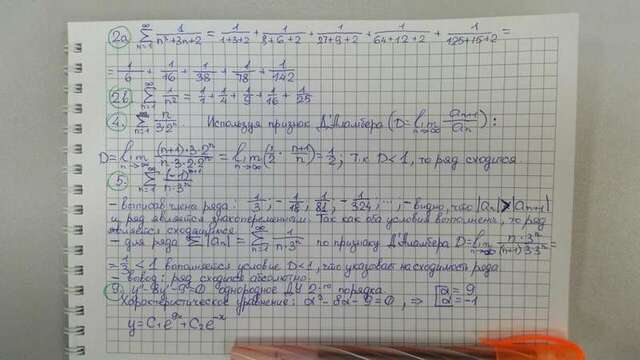 2а ∑_{n=1}^{∞} 1/(n³+3n+2) = 1/(1+3+2) + 1/(8+6+2) + 1/(27+9+2) + 1/(64+12+2) + 1/(125+15+2) =
= 1/6 + 1/16 + 1/38 + 1/78 + 1/142
2б ∑_{n=1}^{∞} 1/n² = 1/1 + 1/4 + 1/9 + 1/16 + 1/25
4. ∑_{n=1}^{∞} n/(3·2ⁿ) Используя признак Д'Аламбера (D = lim_{n→∞} aₙ₊₁/aₙ):
D = lim_{n→∞} (n+1)·3·2ⁿ/(n·3·2·2ⁿ) = lim_{n→∞} (1/2 · (n+1)/n) = 1/2; т.к D<1, то ряд сходится
5. ∑_{n=1}^{∞} (-1)ⁿ⁺¹/(n·3ⁿ)
- выписав члена ряда: 1/3; -1/18; 1/81; -1/324; ...; - видно, что |aₙ|>|aₙ₊₁|
и ряд является знакопеременным. Так как оба условия выполнены, то ряд
является сходящимся
- для ряда ∑|aₙ| = ∑_{n=1}^{∞} 1/(n·3ⁿ) по признаку Д'Аламбера D = lim_{n→∞} n·3ⁿ/((n+1)·3·3ⁿ) =
= 1/3 < 1 выполняется условие D<1, что указывает на сходимость ряда
- вывод: ряд сходится абсолютно.
9) y''-8y'-9=0 однородное ДУ 2-го порядка
Характеристическое уравнение: α²-8α-9=0, ⇒ [α=9 α=-1
y=C₁e⁹ˣ+C₂e⁻ˣ